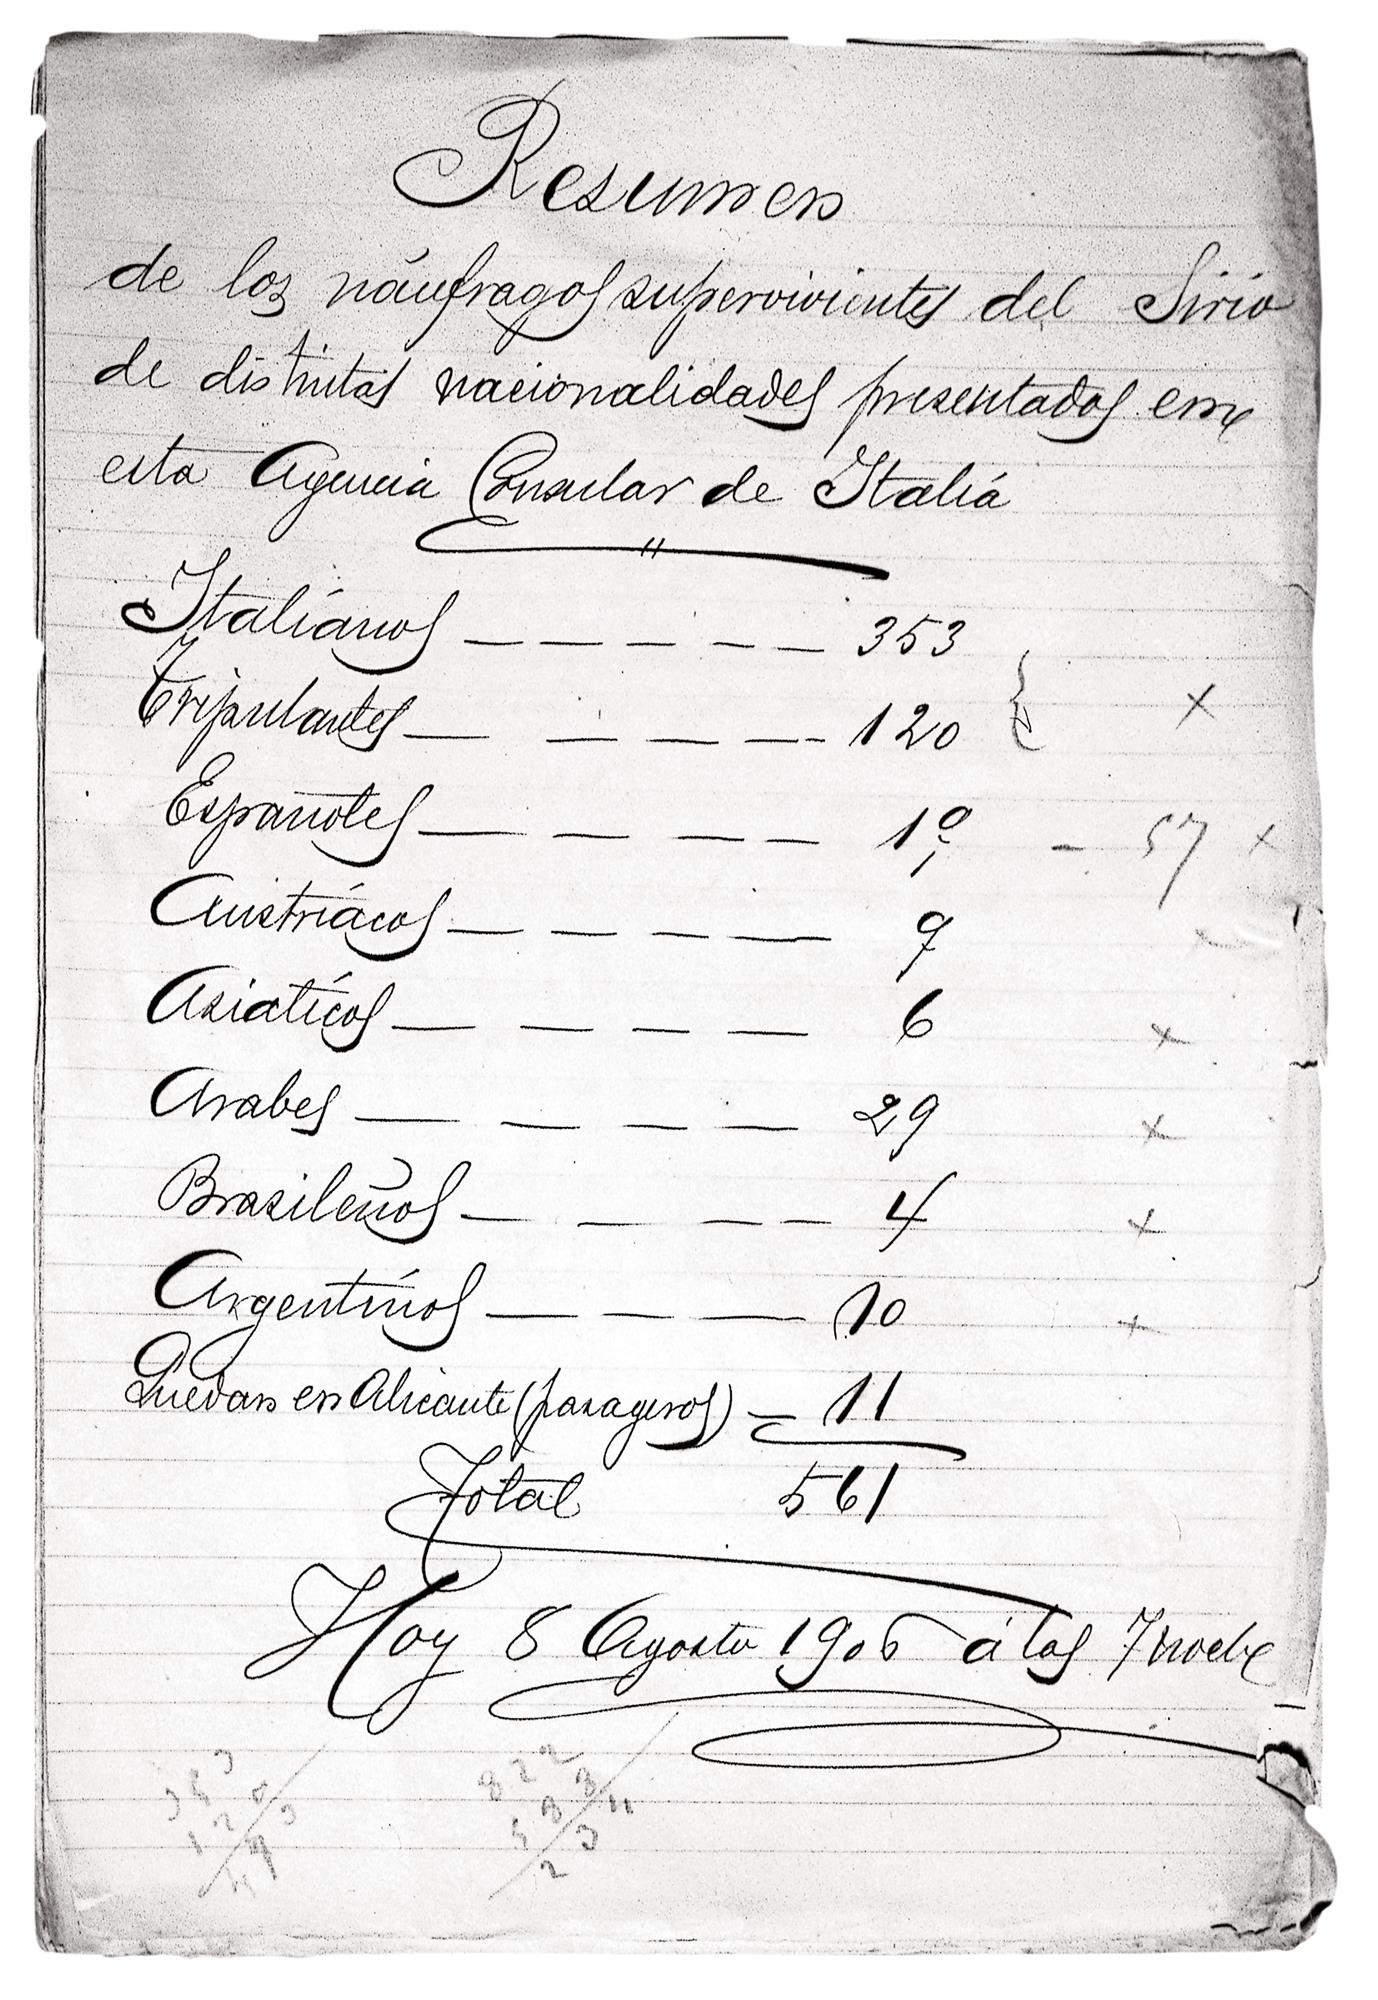 Resumen
de los náufragos supervivientes del Sirio
de distintas nacionalidades presentados en
esta Agencia Consular de Italiá
Italiános — — — — — 353
Tripulantes — — — — 120 x
Españoles — — — — 19 - 57 x
Austriácos — — — — 9 x
Asiatícos — — — — 6 x
Arabes — — — — 29 x
Brasileños — — — — 4 x
Argentínos — — — — 10 x
Quedan en Alicante (pasageros) — 11
Total 561
Hoy 8 Agosto 1906 á las 7 noche
353
120
473
822
588